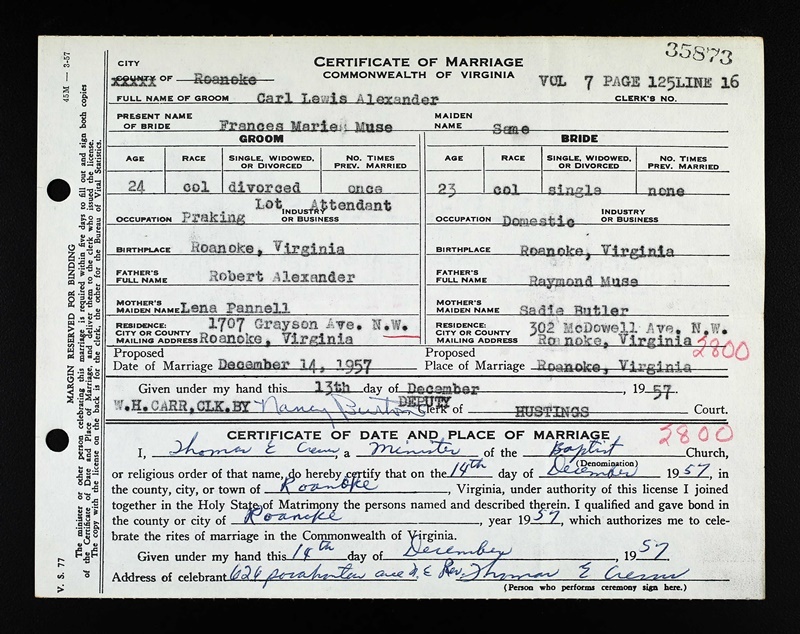 35873
CITY
COUNTY OF Roanoke
CERTIFICATE OF MARRIAGE
COMMONWEALTH OF VIRGINIA
VOL 7 PAGE 125LINE 16
FULL NAME OF GROOM Carl Lewis Alexander CLERK'S NO.
PRESENT NAME OF BRIDE Frances Marie Muse MAIDEN NAME Same
GROOM BRIDE
AGE RACE SINGLE, WIDOWED, OR DIVORCED NO. TIMES PREV. MARRIED AGE RACE SINGLE, WIDOWED, OR DIVORCED NO. TIMES PREV. MARRIED
24 col divorced once 23 col single none
Lot Attendant
OCCUPATION Praking INDUSTRY OR BUSINESS OCCUPATION Domestic INDUSTRY OR BUSINESS
BIRTHPLACE Roanoke, Virginia BIRTHPLACE Roanoke, Virginia
FATHER'S FULL NAME Robert Alexander FATHER'S FULL NAME Raymond Muse
MOTHER'S MAIDEN NAME Lena Pannell MOTHER'S MAIDEN NAME Sadie Butler
RESIDENCE: 1707 Grayson Ave. N.W. RESIDENCE: 302 McDowell Ave. N.W.
CITY OR COUNTY MAILING ADDRESS Roanoke, Virginia CITY OR COUNTY MAILING ADDRESS Roanoke, Virginia 2800
Proposed Date of Marriage December 14, 1957 Proposed Place of Marriage Roanoke, Virginia
Given under my hand this 13th day of December, 1957.
W.H.CARR,CLK.BY Nancy Burton DEPUTY Clerk of HUSTINGS Court.
CERTIFICATE OF DATE AND PLACE OF MARRIAGE 2800
I, Thomas E a Minister of the Baptist Church,
(Denomination)
or religious order of that name, do hereby certify that on the 14th day of December 1957, in
the county, city, or town of Roanoke, Virginia, under authority of this license I joined
together in the Holy State of Matrimony the persons named and described therein. I qualified and gave bond in
the county or city of Roanoke, year 1957, which authorizes me to cele-
brate the rites of marriage in the Commonwealth of Virginia.
Given under my hand this 14th day of December, 1957
Address of celebrant 626 pocahontas ave N.E Rev. Thomas E
(Person who performs ceremony sign here.)
V. S. 77 45M — 3-57
MARGIN RESERVED FOR BINDING
The minister or other person celebrating this marriage is required within five days to fill out and sign both copies
of the Certificate of Date and Place of Marriage, and deliver them to the clerk who issued the license.
The copy with the license on the back is for the clerk, the other for the Bureau of Vital Statistics.